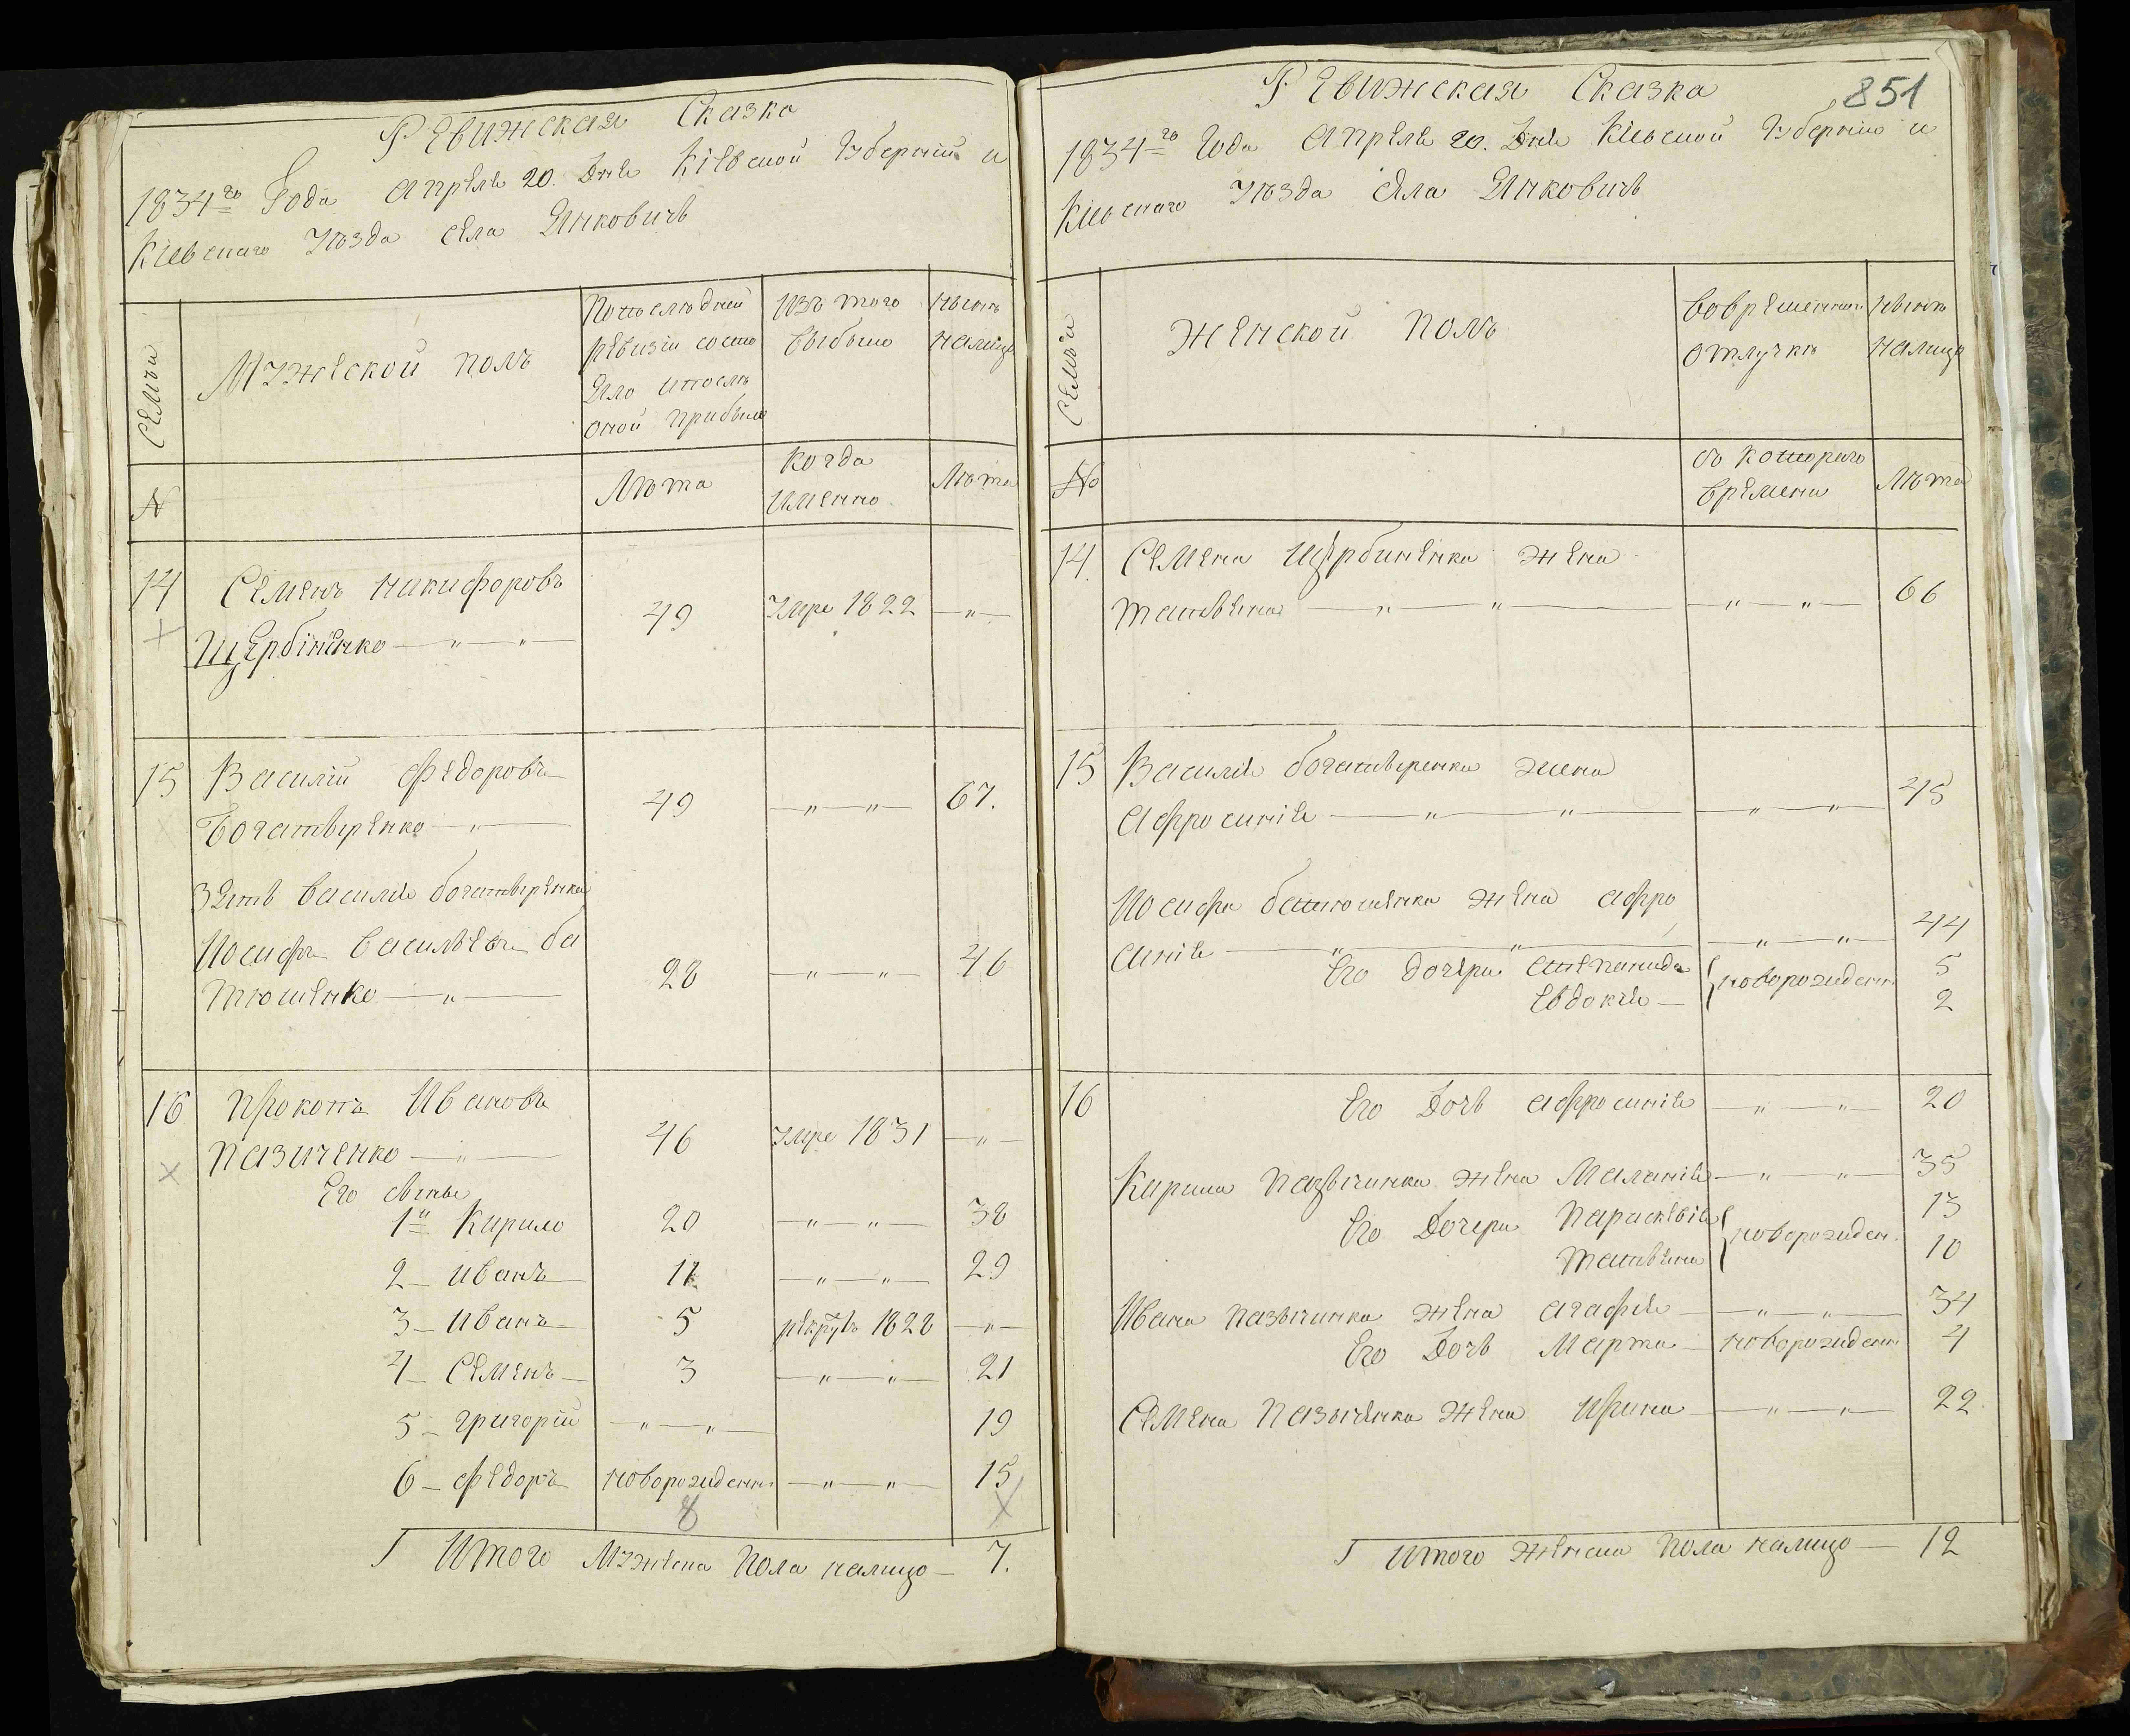 Ревижская Сказка
1834го Года Апреля 20. Дня Кіевской Губерніи и
Кіевскаго Уѣзда села Янковичь
Семьи
Мужеской полъ
Попоследней
ревизіи состо
яло ипосле
оной прибыло
Изъ того
выбыло
Нынѣ
налицо
N
Лѣта
Когда
именно
Лѣта
14 Семенъ Никифоровъ
Щербиненко — " — " — 49 Умре 1822 — " —
15 Василій Федоровъ
Богатыренко — " — 49 — " — " — 67.
Зять Василія богатыренка
Иосифъ Васильевъ ба
тюшенко — " — 28 — " — " — 46
16 Прокопъ Ивановъ
Пазиченко — " — 46 Умре 1831 — " —
Его сыны
1й Кирило 20 — " — " — 38
2 — Иванъ — 11 — " — " — 29
3 — Иванъ — 5 рекрутъ 1828 — " —
4 — Семенъ — 3 — " — " — 21
5 — Григорій — " — " — 19
6 — Федоръ новорожденн — " — " — 15
8
Итого Мужеска Пола налицо — 7.
851
Ревижская Сказка
1834го Года Апреля 20. Дня Кіевской Губерніи и
Кіевскаго Уѣзда села Янковичь
Семьи
Женской Полъ
Вовременной
отлучкѣ
Нынѣ
налицо
№
съ котораго
времени
Лѣта
14. Семена Щербиненка жена
Татьяна — " — " — — " — " — 66
15 Василія богатыренка жена
Афросинія — " — " — — " — " — 45
Иосифа батюшенка жена Афро
синія — " — " — — " — " — 44
Его дочери Степанида новорожденн 5
Евдокія — 2
16 Его Дочь Афросинія — " — " — 20
Кирила Пазыченка жена Маланія — " — " — 35
Его Дочери Параскевія новорожден. 13
Татьяна 10
Ивана Пазыченка жена Агафія — " — " — 34
Его Дочь Марта — новорожденн 4
Семена Пазыченка жена Ирина — " — " — 22
Итого женска Пола налицо — 12